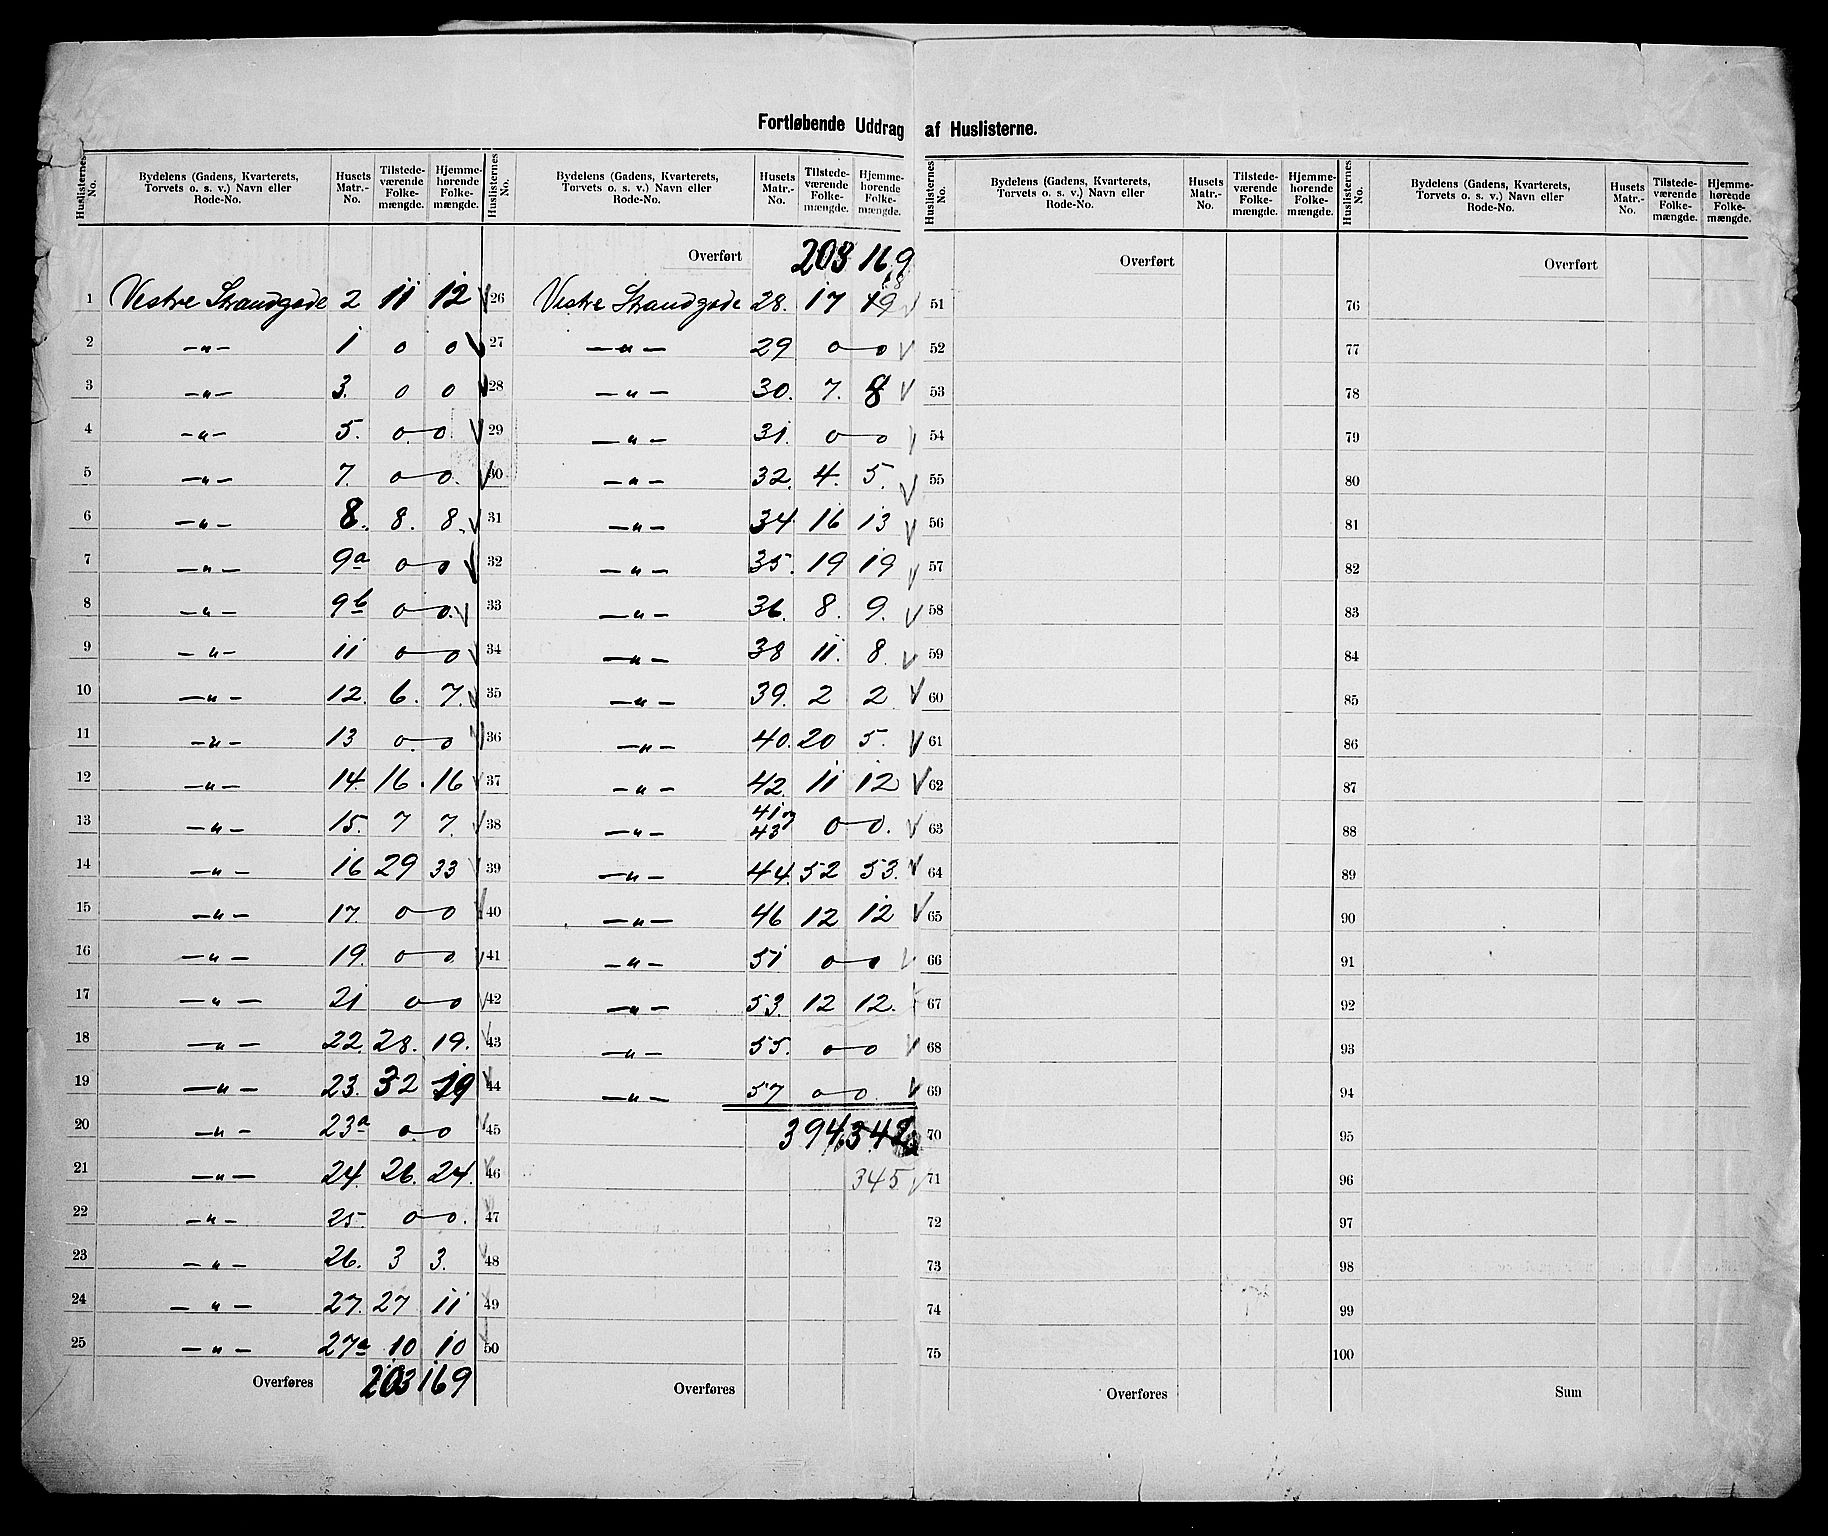 Fortløbende Uddrag af Huslisterne.
Huslisternes No. | Bydelens (Gadens, Kvarterets, Torvets o. s. v.) Navn eller Rode-No. | Husets Matr.-No. | Tilstede-værende Folke-mængde. | Hjemme-hørende Folke-mængde.
1 Vestre Strandgade 2 11 12
2 —"— 1 0 0
3 —"— 3. 0 0
4 —"— 5. 0 0
5 —"— 7. 0 0.
6 —"— 8. 8. 8.
7 —"— 9a 0 0
8 —"— 9b 0 0.
9 —"— 11 0 0
10 —"— 12. 6. 7.
11 —"— 13 0. 0
12 —"— 14. 16. 16
13 —"— 15. 7 7.
14 —"— 16 29 33
15 —"— 17. 0 0
16 —"— 19. 0 0
17 —"— 21 0 0
18 —"— 22. 28. 19.
19 —"— 23. 32 19
20 —"— 23a 0. 0
21 —"— 24. 26. 24.
22 —"— 25 0 0.
23 —"— 26. 3 3.
24 —"— 27. 27 11
25 —"— 27a 10 10
Overføres 203 169
Huslisternes No. | Bydelens (Gadens, Kvarterets, Torvets o. s. v.) Navn eller Rode-No. | Husets Matr.-No. | Tilstede-værende Folke-mængde. | Hjemme-hørende Folke-mængde.
Overført 203 169
26 Vestre Strandgade 28. 17 19 18
27 —"— 29 0 0
28 —"— 30. 7. 8
29 —"— 31. 0 0
30 —"— 32. 4. 5.
31 —"— 34 16 13
32 —"— 35. 19 19
33 —"— 36. 8. 9.
34 —"— 38 11. 8.
35 —"— 39. 2 2
36 —"— 40. 20 5.
37 —"— 42. 11 12
38 —"— 41 43 0 0.
39 —"— 44. 52 53.
40 —"— 46 12 12
41 —"— 51 0 0
42 —"— 53. 12 12.
43 —"— 55. 0 0
44 —"— 57 0 0
45 394
46 345
47
48
49
50
Overføres
Huslisternes No. | Bydelens (Gadens, Kvarterets, Torvets o. s. v.) Navn eller Rode-No. | Husets Matr.-No. | Tilstede-værende Folke-mængde. | Hjemme-hørende Folke-mængde.
Overført
51
52
53
54
55
56
57
58
59
60
61
62
63
64
65
66
67
68
69
70
71
72
73
74
75
Overføres
Huslisternes No. | Bydelens (Gadens, Kvarterets, Torvets o. s. v.) Navn eller Rode-No. | Husets Matr.-No. | Tilstede-værende Folke-mængde. | Hjemme-hørende Folke-mængde.
Overført
76
77
78
79
80
81
82
83
84
85
86
87
88
89
90
91
92
93
94
95
96
97
98
99
100
Sum